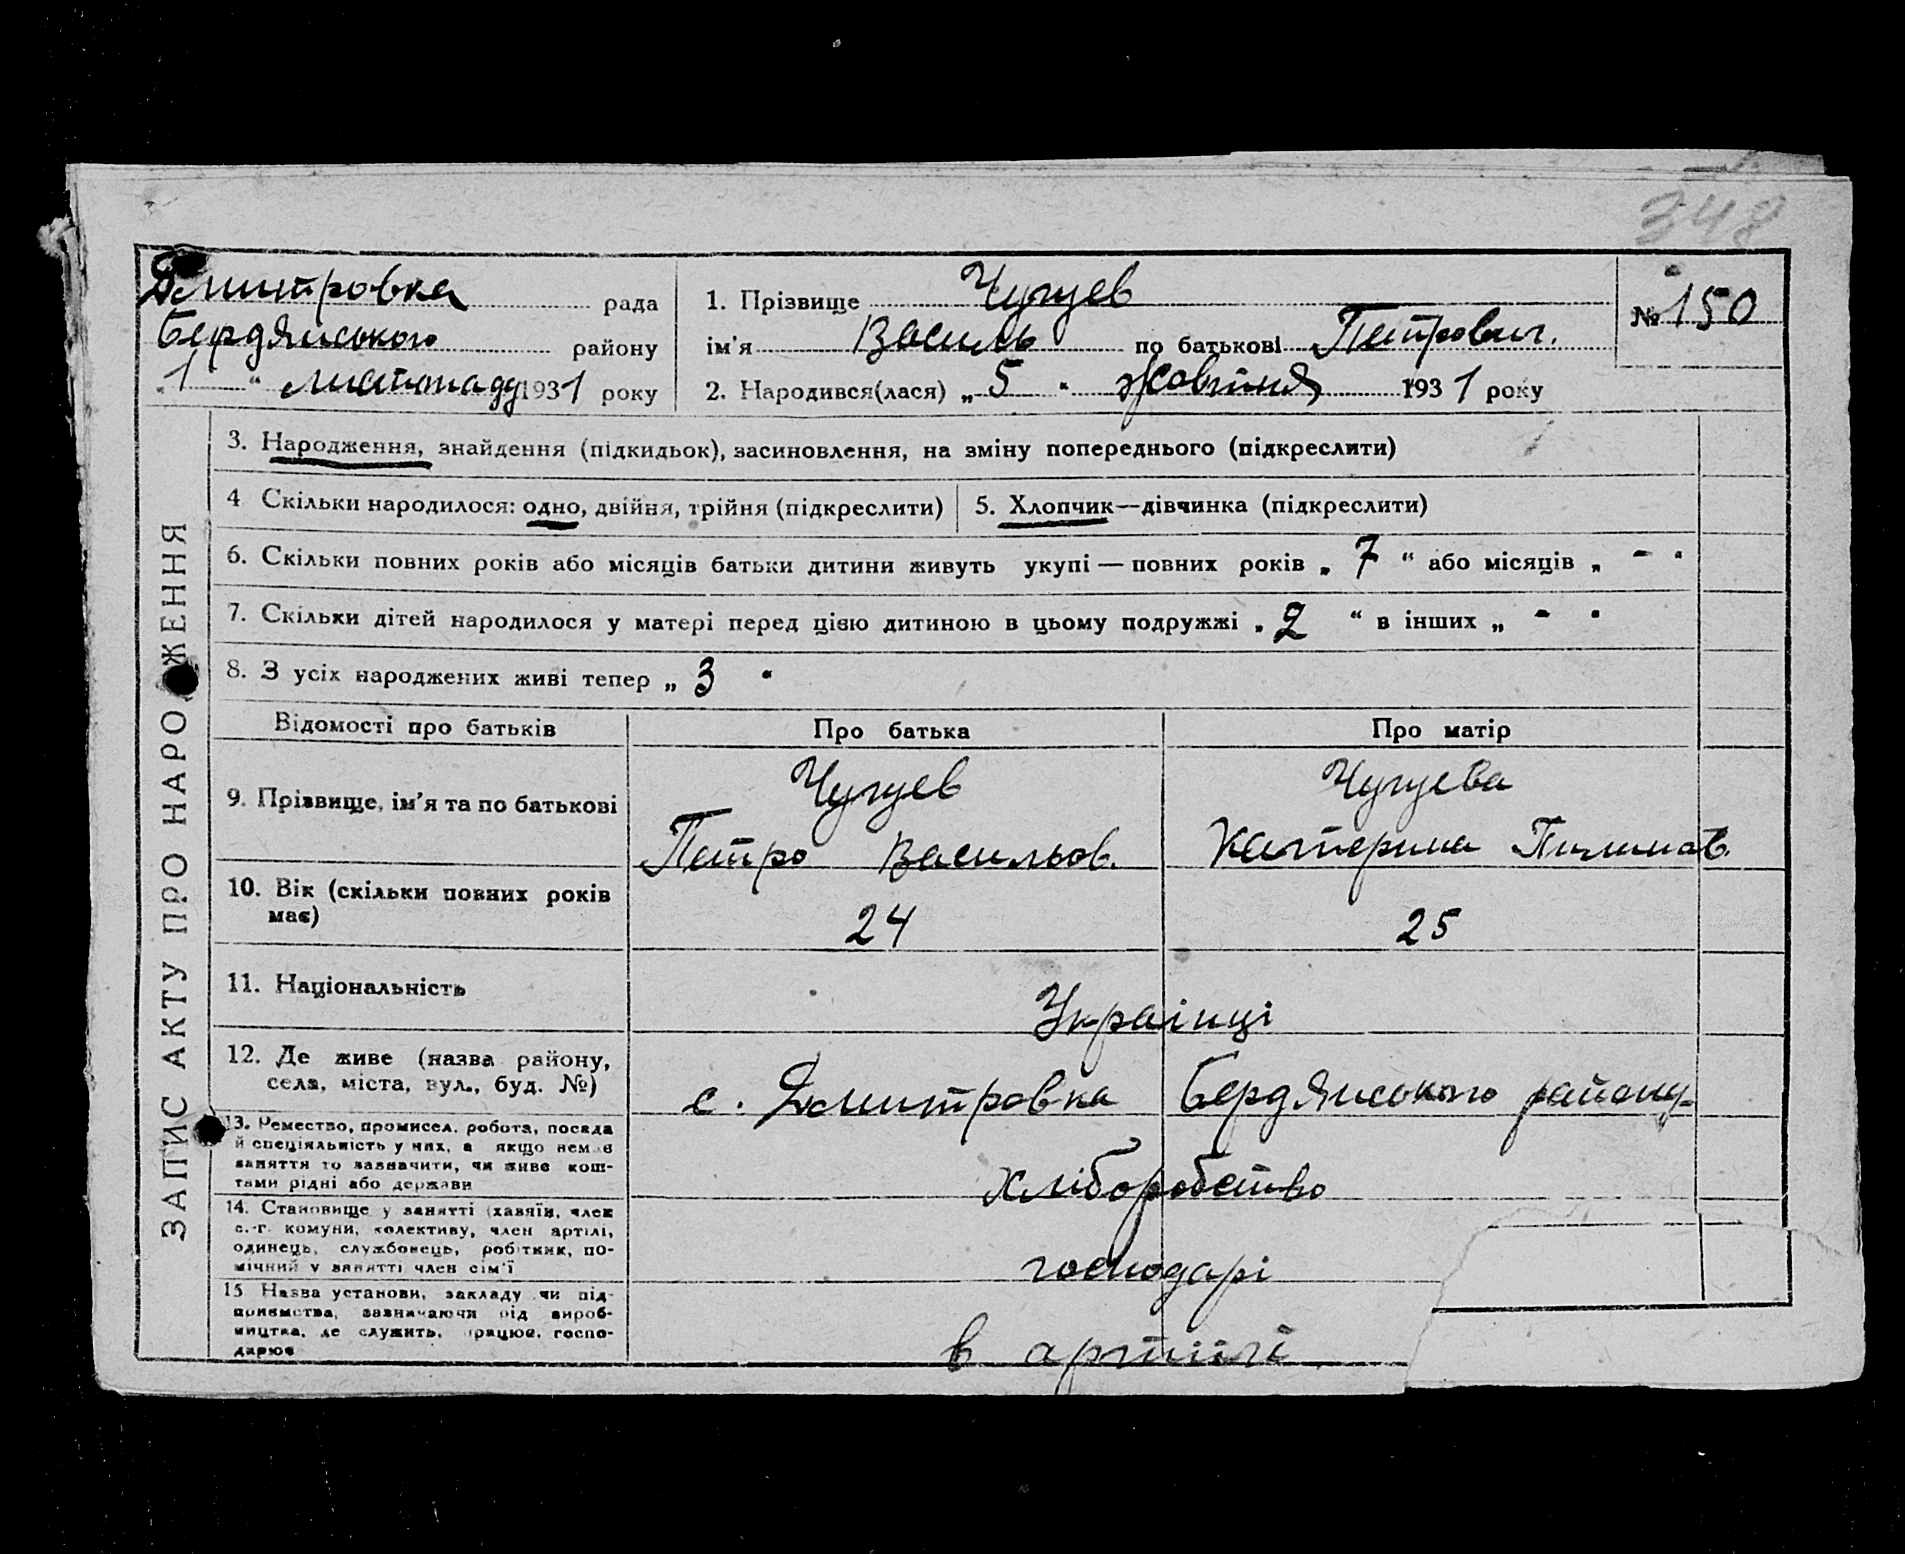 348
Дмитровка рада
Бердянського району
1 " листопаду 1931 року
1. Прізвище Чугуев
ім'я Василь по батькові Петрович.
2. Народився(лася) „ 5 " Жовтня 1931 року
№ 150
ЗАПИС АКТУ ПРО НАРОДЖЕННЯ
3. Народження, знайдення (підкидьок), засиновлення, на зміну попереднього (підкреслити)
4 Скільки народилося: одно, двійня, трійня (підкреслити)
5. Хлопчик—дівчинка (підкреслити)
6. Скільки повних років або місяців батьки дитини живуть укупі — повних років „ 7 “ або місяців „ - "
7. Скільки дітей народилося у матері перед цією дитиною в цьому подружжі „ 2 “ в інших „ - "
8. З усіх народжених живі тепер „ 3 "
Відомості про батьків Про батька Про матір
9. Прізвище, ім'я та по батькові
Чугуев Чугуева
Петро Васильов. Катерина
10. Вік (скільки повних років
має)
24 25
11. Національність
Українці
12. Де живе (назва району,
села, міста, вул., буд. №)
с. Дмитровка Бердянського району
13. Ремество, промисел, робота, посада
й спеціяльність у них, а якщо немає
заняття то зазначити, чи живе кош-
тами рідні або держави
хліборобство
14. Становище у занятті (хазяїн, член
с.-г. комуни, колективу, член артілі,
одинець, службовець, робітник, по-
мічний у занятті член сім'ї
господарі
15 Назва установи, закладу чи під-
приємства, зазначаючи рід вироб-
ництва, де служить, працює, госпо-
дарює
в артілі